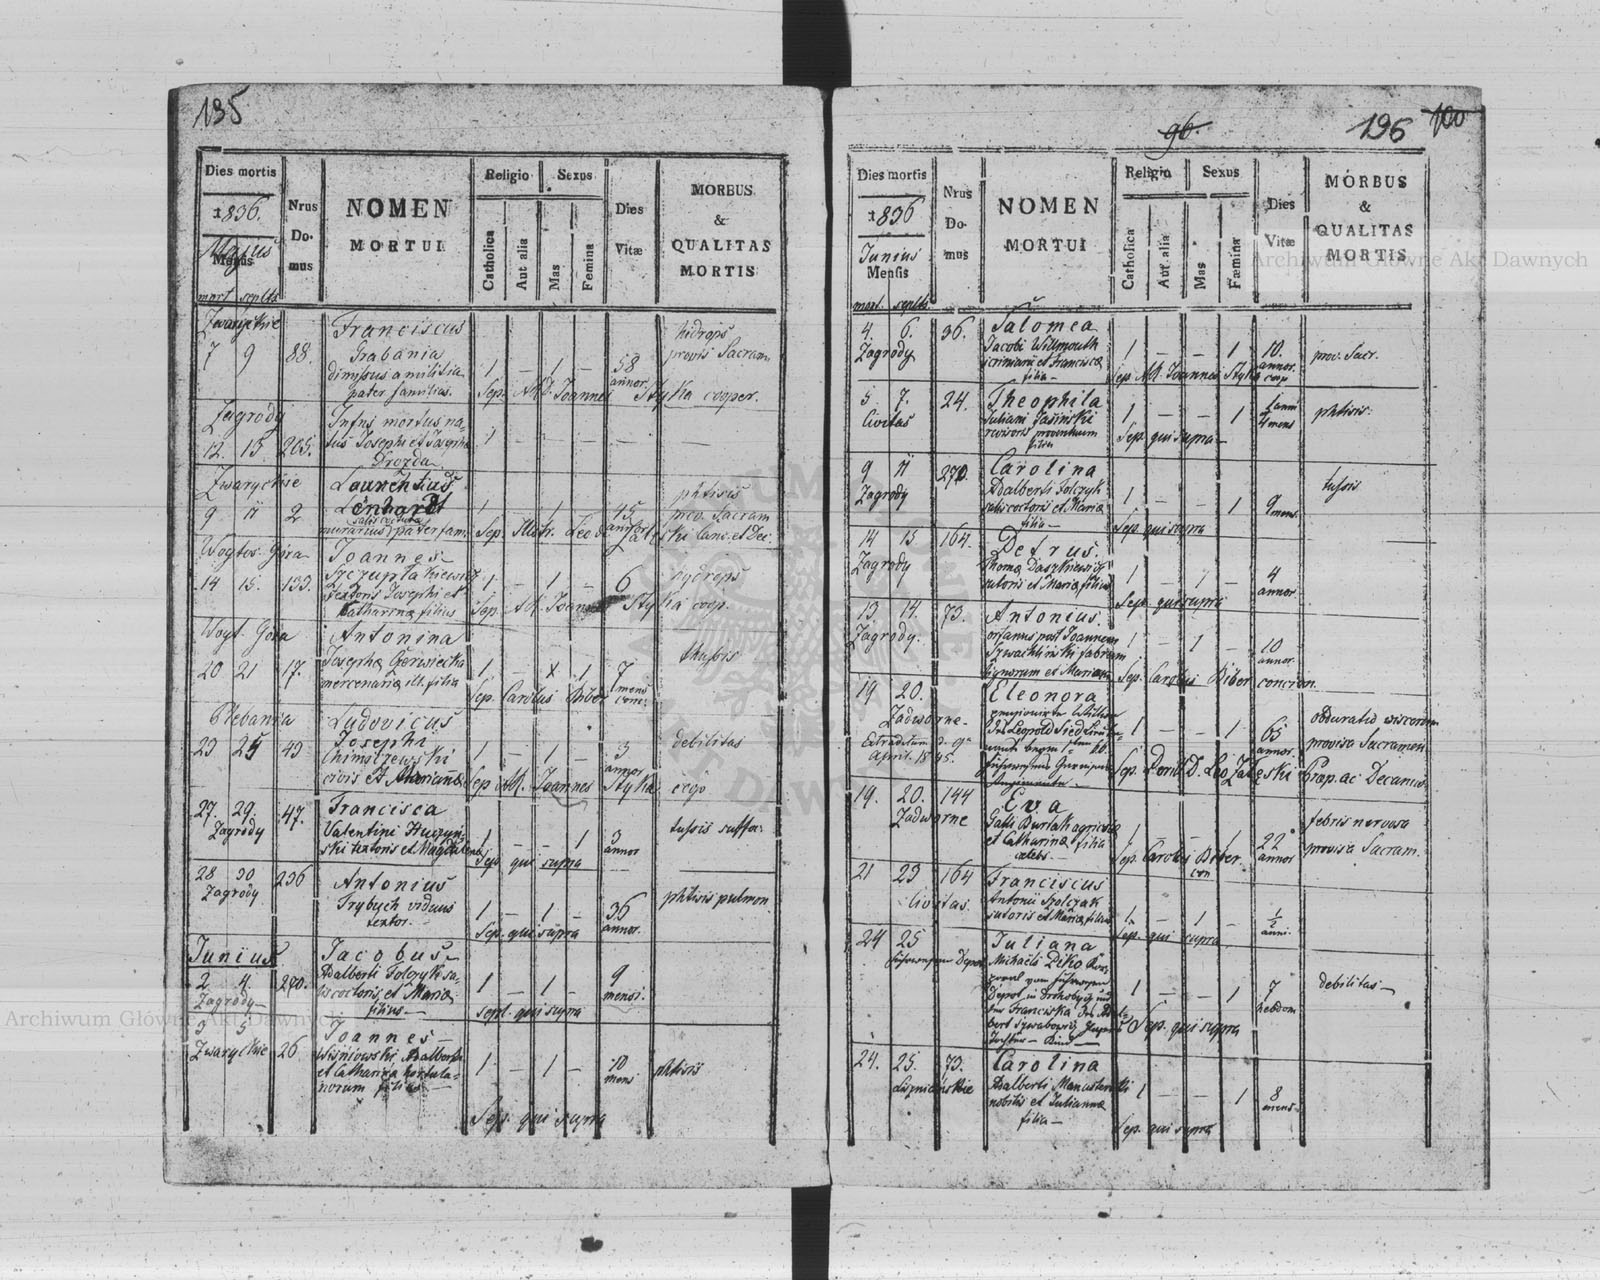 195
Dies mortis
1836.
Majus
Mensis
mort. seplt.
Nrus
Do-
mus
NOMEN
MORTUI
Religio
Catholica
Aut alia
Sexus
Mas
Femina
Dies
Vitæ
MORBUS
&
QUALITAS
MORTIS
Zwarickie
7 9 88.
Franciscus
Grabania
dimissus a militia
pater familias.
1 — 1 —
58
annor.
hidrops
provis Sacram.
Sep. AR. Joannes Styka cooper.
Zagrody
12. 13. 205.
Infns mortus na-
tus Josephi et Josepha
Drozda
1 — — —
Zwarychie
9 11 2
Laurentius
Lenhardt
salis coctura
murarius pater fam.
1 1
45
annor
phtisis
prov. Sacram
Sep. Illstr. Leo de Zaleski Canc. et Dec.
Woytos. Góra
14 15. 133.
Joannes
textoris Josephi et
Catharinæ filius
1 — 1 —
6
hydrops
Sep. AR. Joannes Styka coop.
Woyt. Góra
20 21 17.
Antonina
Josepha Gerwiecka
mercenaria ill. filia
1 — x 1
7
mens
thussis
Sep. Carolus Biber conc.
Plebania
23 25 43
Ludovicus
Josephi
Chimszewski
civis et Mariannæ
1 — 1 —
3
annor
debilitas
Sep. AR. Joannes Styka
27. 29. 47.
Zagrody
Francisca
Valentini Huczyn-
ski textoris et Magdalena
1 — — 1
3
annor
tussis suffo:
Sep. qui supra
28 30 236
Zagrody
Antonius
Trybuch viduus
textor.
1 — 1 —
36
annor.
phtisis pulmon
Sep. qui supra
Junius
2 4. 270.
Zagrody
Jacobus
Adalberti Tolczyk sa-
lis coctoris, et Maria
filius —
1 — 1 —
9
mensi.
Sept. qui supra
3 5
Zwarychie 26
Joannes —
Wisniowski Adalberti
et Catharina hortula-
norum filius
1 — 1 —
10
mens
phtisis
Sep. qui supra
96.
196
100
Dies mortis
1836
Junius
Mensis
mort. seplt.
Nrus
Do-
mus
NOMEN
MORTUI
Religio
Catholica
Aut alia
Sexus
Mas
Fæmina
Dies
Vitæ
MORBUS
&
QUALITAS
MORTIS
4. 6. 36.
Zagrody
Salomea
Jacobi Willmouth
scriniarii et Francisca
filia —
1 — — 1
10.
annor.
prov. Sacr.
Sep. AR. Joannes Styka coop
5 7. 24.
Civitas
Theophila
Juliani Jasinski
revisoris proventuum
filia
1 — — 1
1 anni
4 mens
phtisis
Sep. qui supra —
9 11 270.
Zagrody
Carolina
Adalberti Tolczyk
salis coctoris et Maria
filia —
1 — — 1
9 mens.
tussis
Sep. qui supra
14 15 164.
Zagrody
Petrus.
Thoma Daszkiewicz
sutoris et Maria filius
1 — 1 —
4
annor
Sep. qui supra
13. 14. 73.
Zagrody.
Antonius.
orfanus post Joannem
Szwachlinski fabrum
lignorum et Mariam
1 — 1 —
10
annor
Sep. Carolus Biber concion.
19 20.
Zadworne
Extraditum d. 9ª
April. 1845.
Eleonora
1 — — 1
65
annor
obduratio viscerum
provisa Sacramen
Sep. Perill. D. Leo Zaleski Præp. ac Decanus
19. 20. 144
Zadworne
Eva
Galli Burlak agricolæ
et Catharina filia
cælebs —
1 — — 1
22
annor
febris nervosa
provisa Sacram.
Sep. Carolus Biber
con
21 23 164
Civitas
Franciscus
Antonii Spolczak
sutoris et Maria filius
1 — 1 —
1/2
anni.
Sep. qui supra
24 25
Juliana
Michaeli Diko Kor-
poral vom
Depot in Drohobycz und
der Franciska
Tochter — Kind —
1 — — 1
7
hebdom
debilitas —
Sep. qui supra
24. 25. 73.
Liszniańskie
Carolina
Adalberti Manasterski
nobilis et Julianna
filia —
1 — — 1
8
mens.
Sep. qui supra
Archiwum Główne Akt Dawnych
Archiwum Główne Akt Dawnych